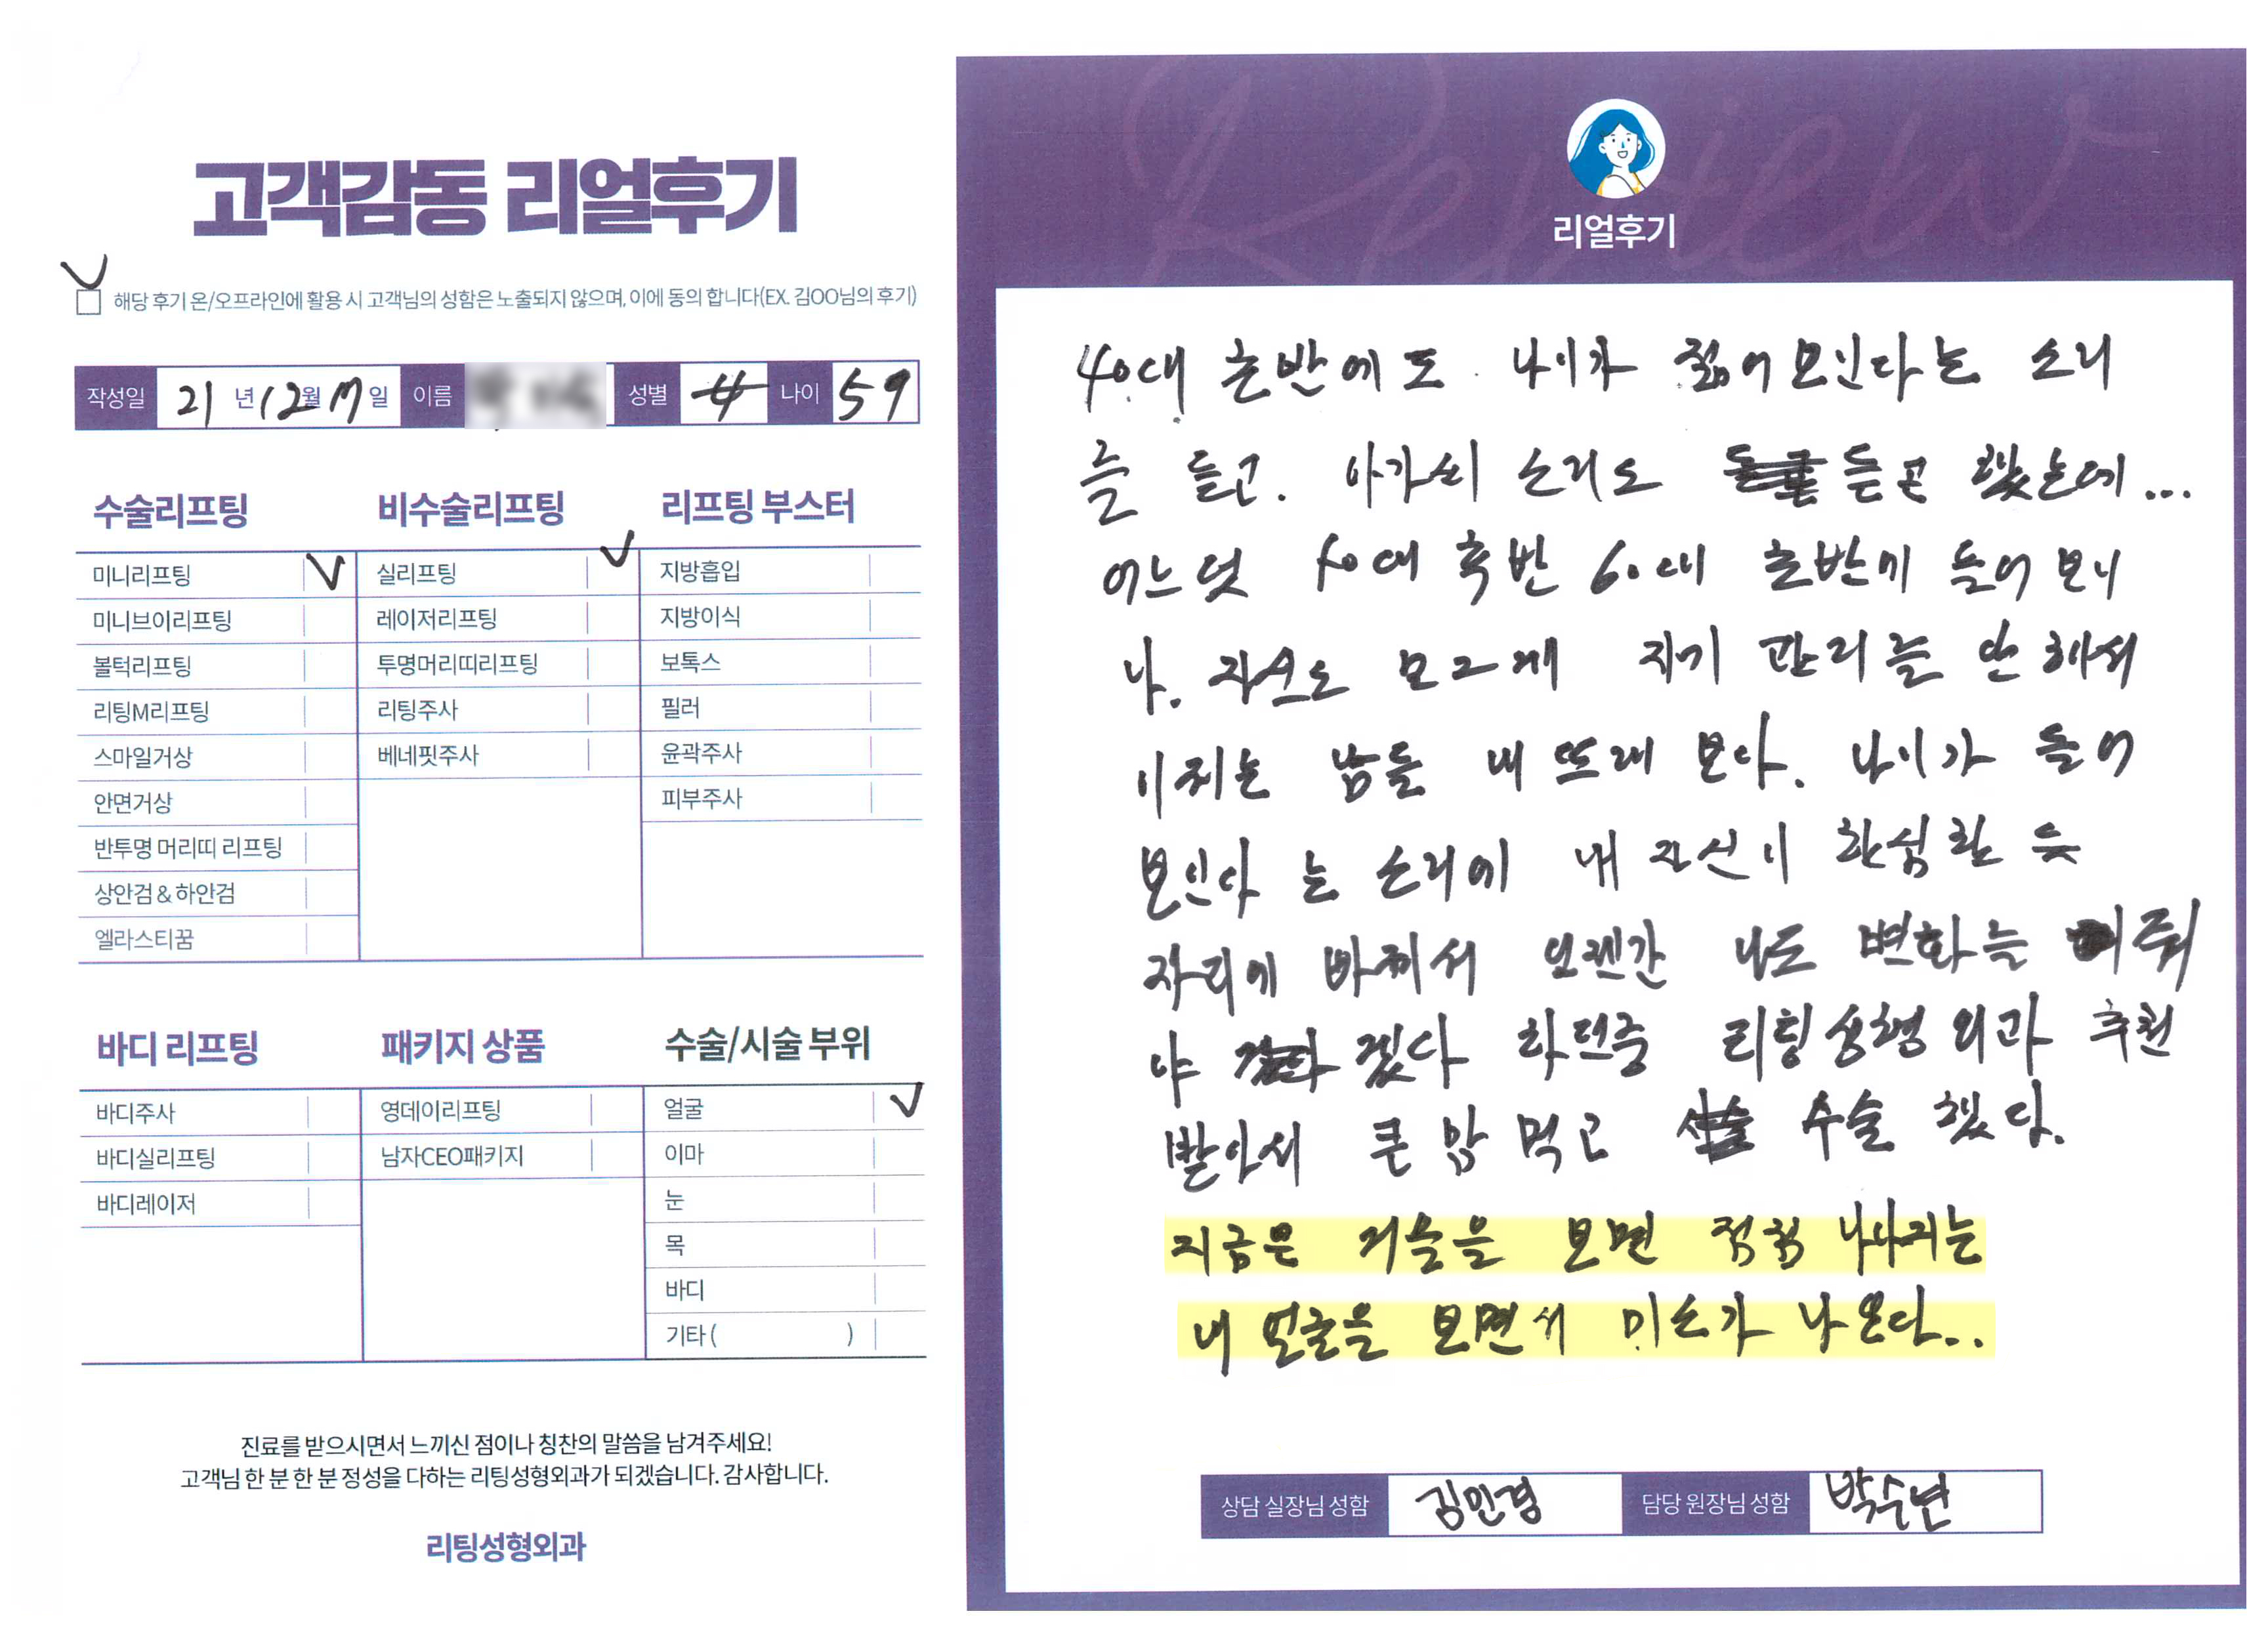 고객감동 리얼후기
해당 후기 온/오프라인에 활용 시 고객님의 성함은 노출되지 않으며, 이에 동의 합니다(EX. 김OO님의 후기)
작성일 21 년 12 월 17 일 이름 성별 여 나이 59
수술리프팅
미니리프팅
미니브이리프팅
볼턱리프팅
리팅M리프팅
스마일거상
안면거상
반투명 머리띠 리프팅
상안검 & 하안검
엘라스티꿈
비수술리프팅
실리프팅
레이저리프팅
투명머리띠리프팅
리팅주사
베네핏주사
리프팅 부스터
지방흡입
지방이식
보톡스
필러
윤곽주사
피부주사
바디 리프팅
바디주사
바디실리프팅
바디레이저
패키지 상품
영데이리프팅
남자CEO패키지
수술/시술 부위
얼굴
이마
눈
목
바디
기타 ( )
진료를 받으시면서 느끼신 점이나 칭찬의 말씀을 남겨주세요!
고객님 한 분 한 분 정성을 다하는 리팅성형외과가 되겠습니다. 감사합니다.
리팅성형외과
Review
리얼후기
40대 초반에도 나이가 젊어보인다는 소리
를 듣고. 아가씨 소리도 듣곤 했는데...
어느덧 50대 후반 60대 초반에 들어 보니
나. 자신도 모르게 자기 관리를 안 해서
이제는 남들 내 또래 보다. 나이가 들어
보인다 는 소리에 내 자신이 한심할 듯
자리에 바쳐서 언젠간 나도 변화를 줘
야 겠다 하던중 리팅성형외과 추천
받아서 큰 맘 먹고 수술 했다.
지금은 거울을 보면 점점 나아지는
내 얼굴을 보면서 미소가 나온다..
상담 실장님 성함 김민경 담당 원장님 성함 박수년